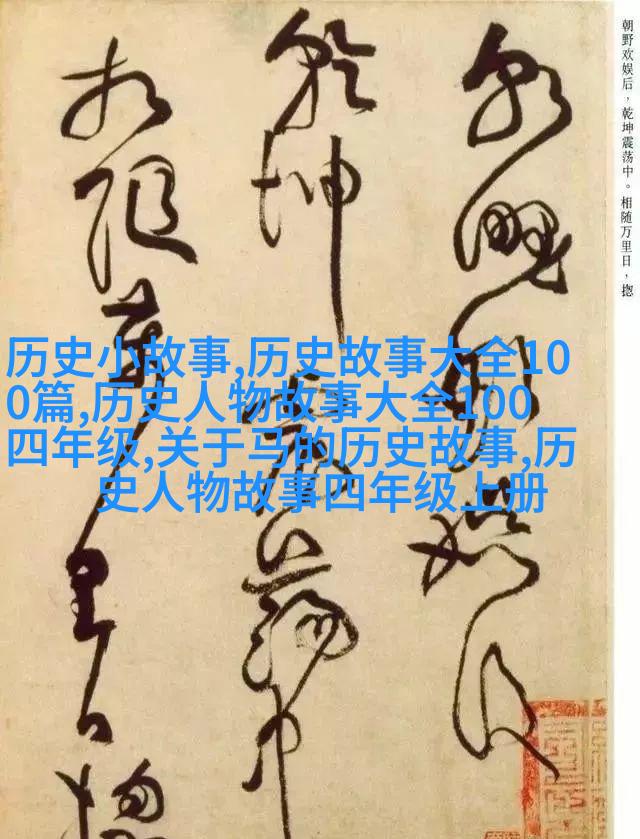 朝野欢娱后，乾坤震荡中。相随万里日，揔
朝野歡娛後
乾坤震蕩中
相随萬里日揔
历史小故事,历史故事大全10
0篇,历史人物故事大全100
四年级,关于马的历史故事,历
史人物故事四年级上册